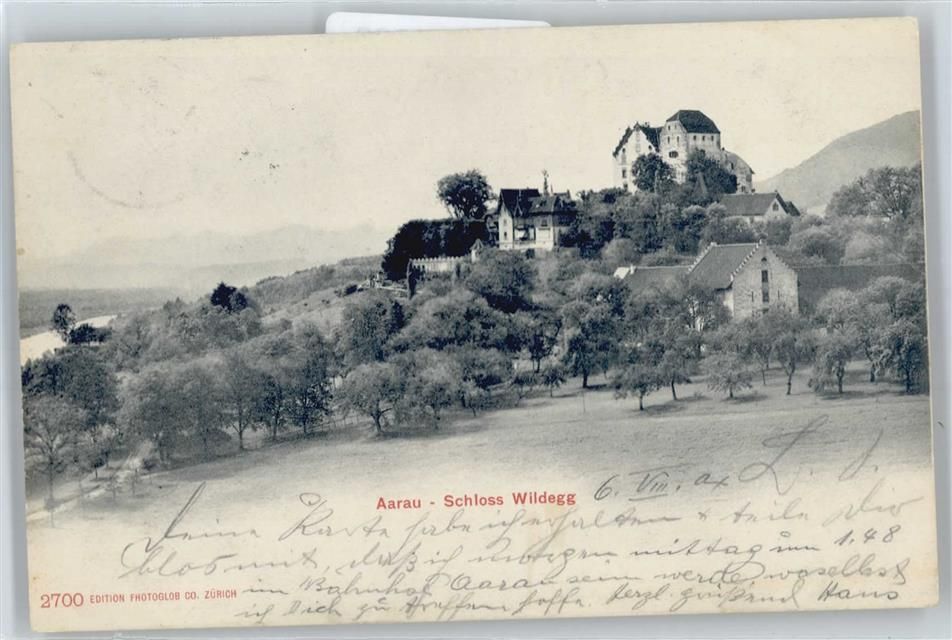 Aarau - Schloss Wildegg
6. VIII. 04 L. J.
Deine Karte habe ich erhalten & teile Dir
blos mit, daß ich morgen mittag um 1.48
im Bahnhof Aarau sein werde woselbst
ich Dich zu treffen hoffe. Herzl. grüßend Hans
2700 EDITION PHOTOGLOB CO. ZÜRICH